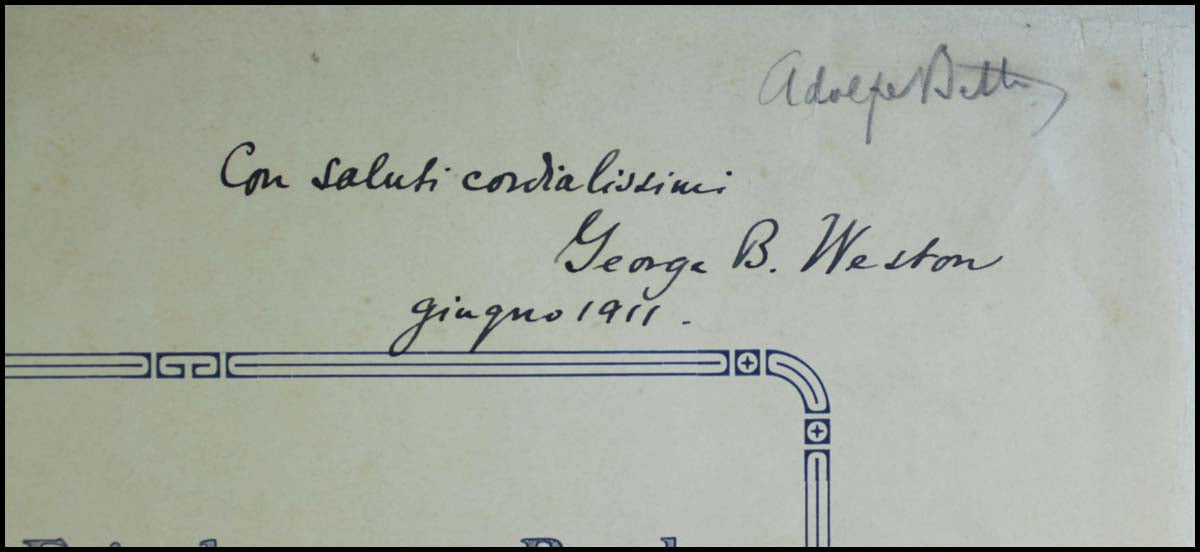 Adolfo Betti
Con saluti cordialissimi
George B. Weston
giugno 1911.